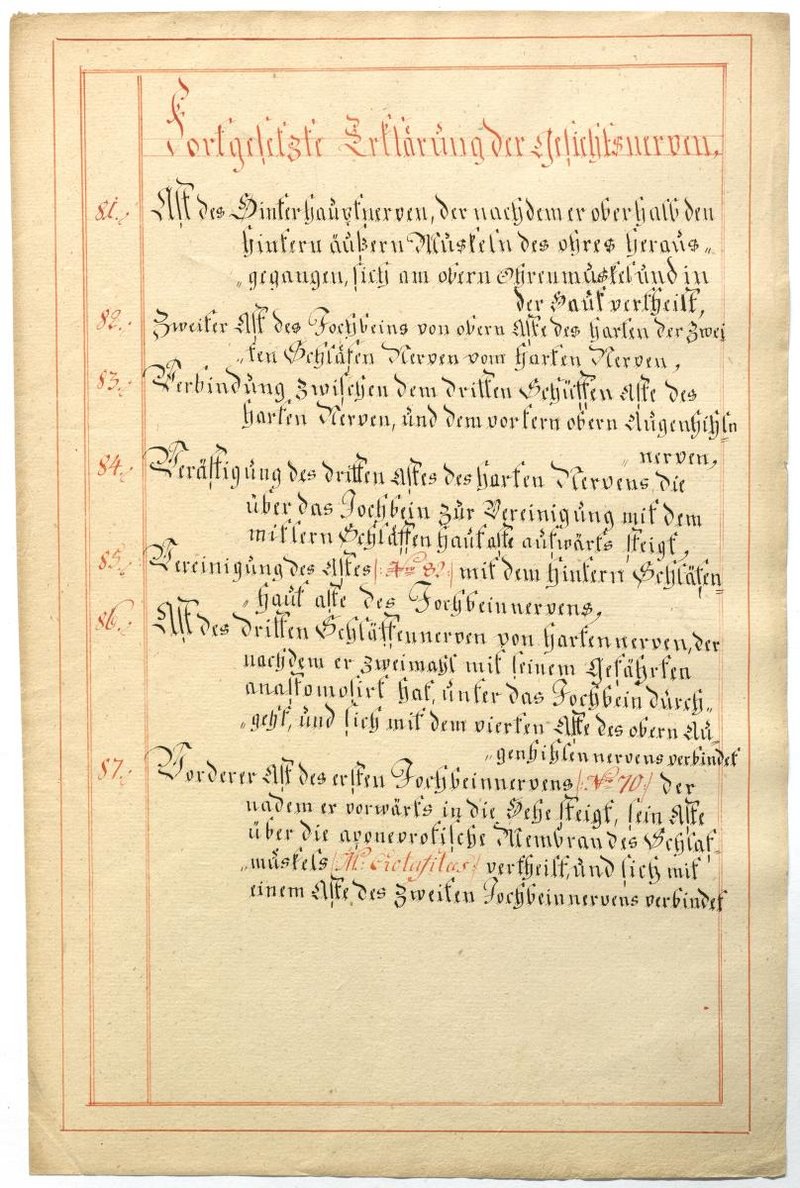 Fortgesetzte Erklärung der Gesichtsnerven.
81. Ast des Hinterhauptnerven, der nachdem er oberhalb den
hintern äußern Muskeln des ohres heraus„
„gegangen, sich am obern Ohrenmuskel und in
der Haut vertheilt,
82. Zweiter Ast des Jochbeins von obern Aste des harten der Zwei
„ten Schläfen Nerven vom harten Nerven,
83. Verbindung zwischen dem dritten Schläffen Aste des
harten Nerven, und dem vortern obern Augenhihln
„nerven,
84. Verästigung des dritten Astes des harten Nervens, die
über das Jochbein zur Vereinigung mit dem
mitlern Schläffen haut aste aufwärts steigt,
85. Vereinigung des Astes /: No 82 :/ mit dem hintern Schläfen=
„haut aste des Jochbeinnervens,
86. Ast des dritten Schläffennerven von harten nerven, der
nachdem er zweimahl mit seinem Gefährten
anastomosirt hat, unter das Jochbein durch„
„geht, und sich mit dem vierten Aste des obern Au„
„genhihlennervens verbindet
87. Vorderer Ast des ersten Jochbeinnervens /: No 70 :/ der
nadem er vorwärts in die Hehe steigt, sein Aste
über die aponevrotische Membran des Schlaf„
„muskels /: M: Crotafitus :/ vertheilt, und sich mit
einem Aste des Zweiten Jochbeinnervens verbindet